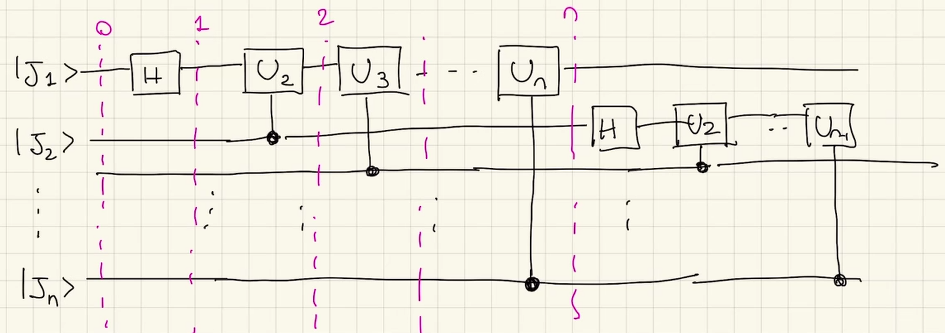 0 1 2 n
|J₁> H U₂ U₃ -- Uₙ
|J₂> H U₂ -- Uₙ₋₁
|Jₙ>